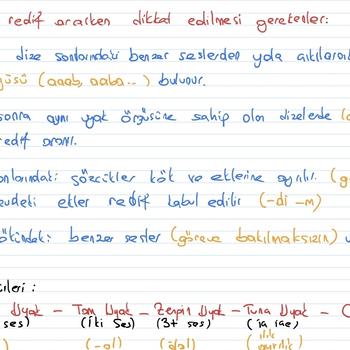 redif ararken dikkat edilmesi gerekenler:
dize sonlarındaki benzer seslerden yola
(aaab, aaba..) bulunur.
sonra aynı uyak örgüsüne sahip olan dizelerde
redif aranır.
sözcükler kök ve eklerine ayrılır.
ekler redif kabul edilir (-di -m)
benzer sesler (göreve bakılmaksızın)
Uyak - Tam Uyak - Zengin Uyak - Tunç Uyak -
ses) (iki ses) (3+ ses)